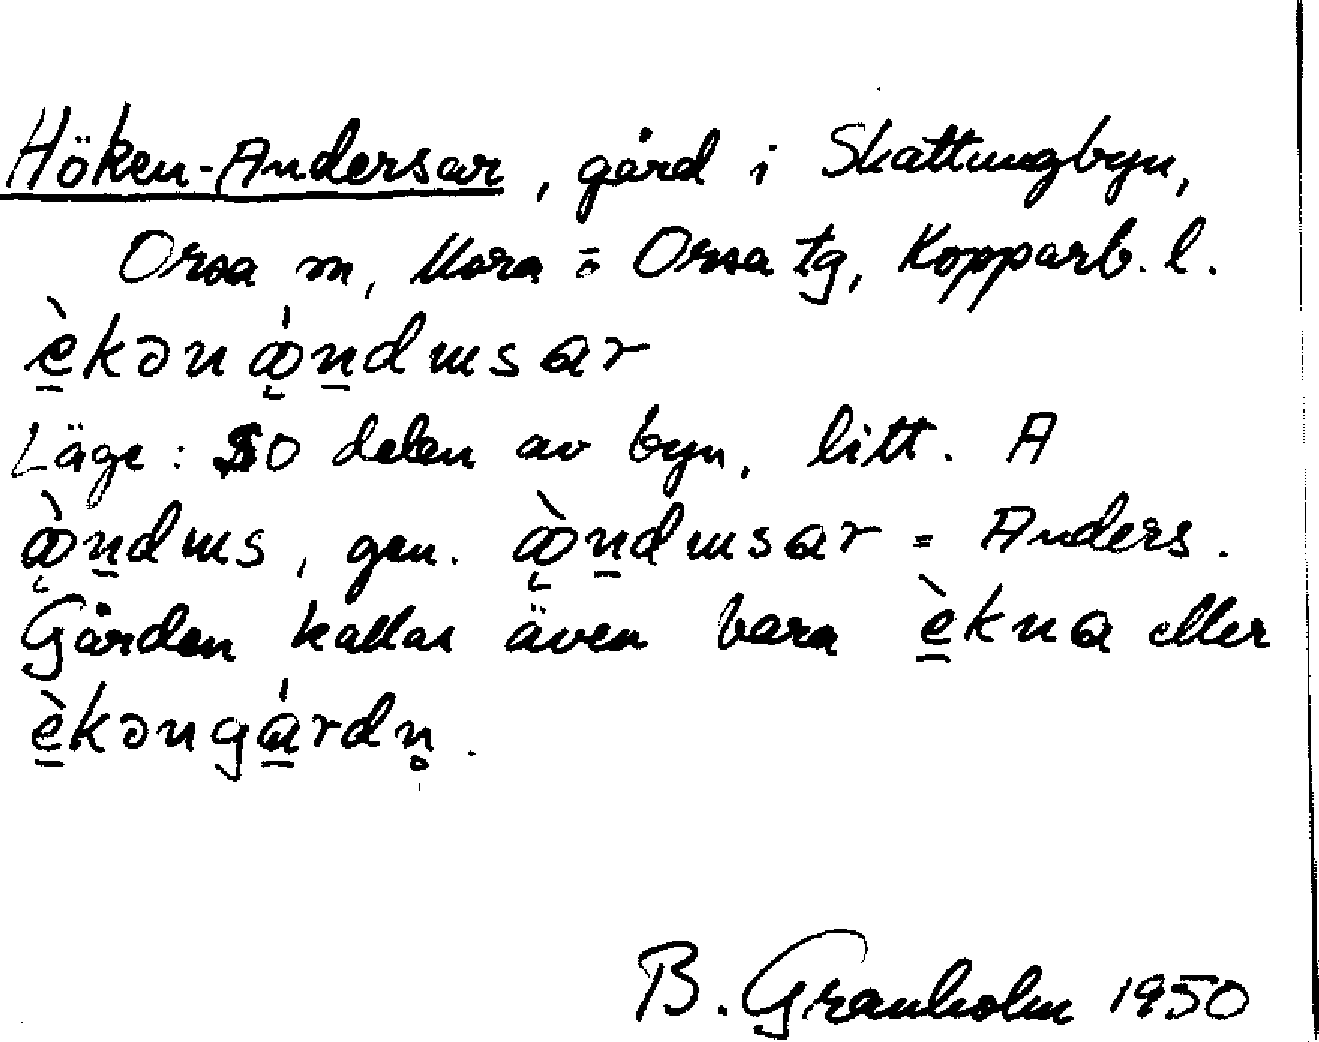 Höken-Andersar, gård i Skattungbyn,
Orsa sn, Mora o Orsa tg, Kopparb. l.
è̱kənå̀ṉdɯsar
Läge: SO delen av byn, litt. A
å̀ṉdɯs, gen. å̀ṉdɯsar = Anders.
Gården kallas även bara è̱kna eller
è̱kəngá̱rdn̥.
B. Granholm 1950